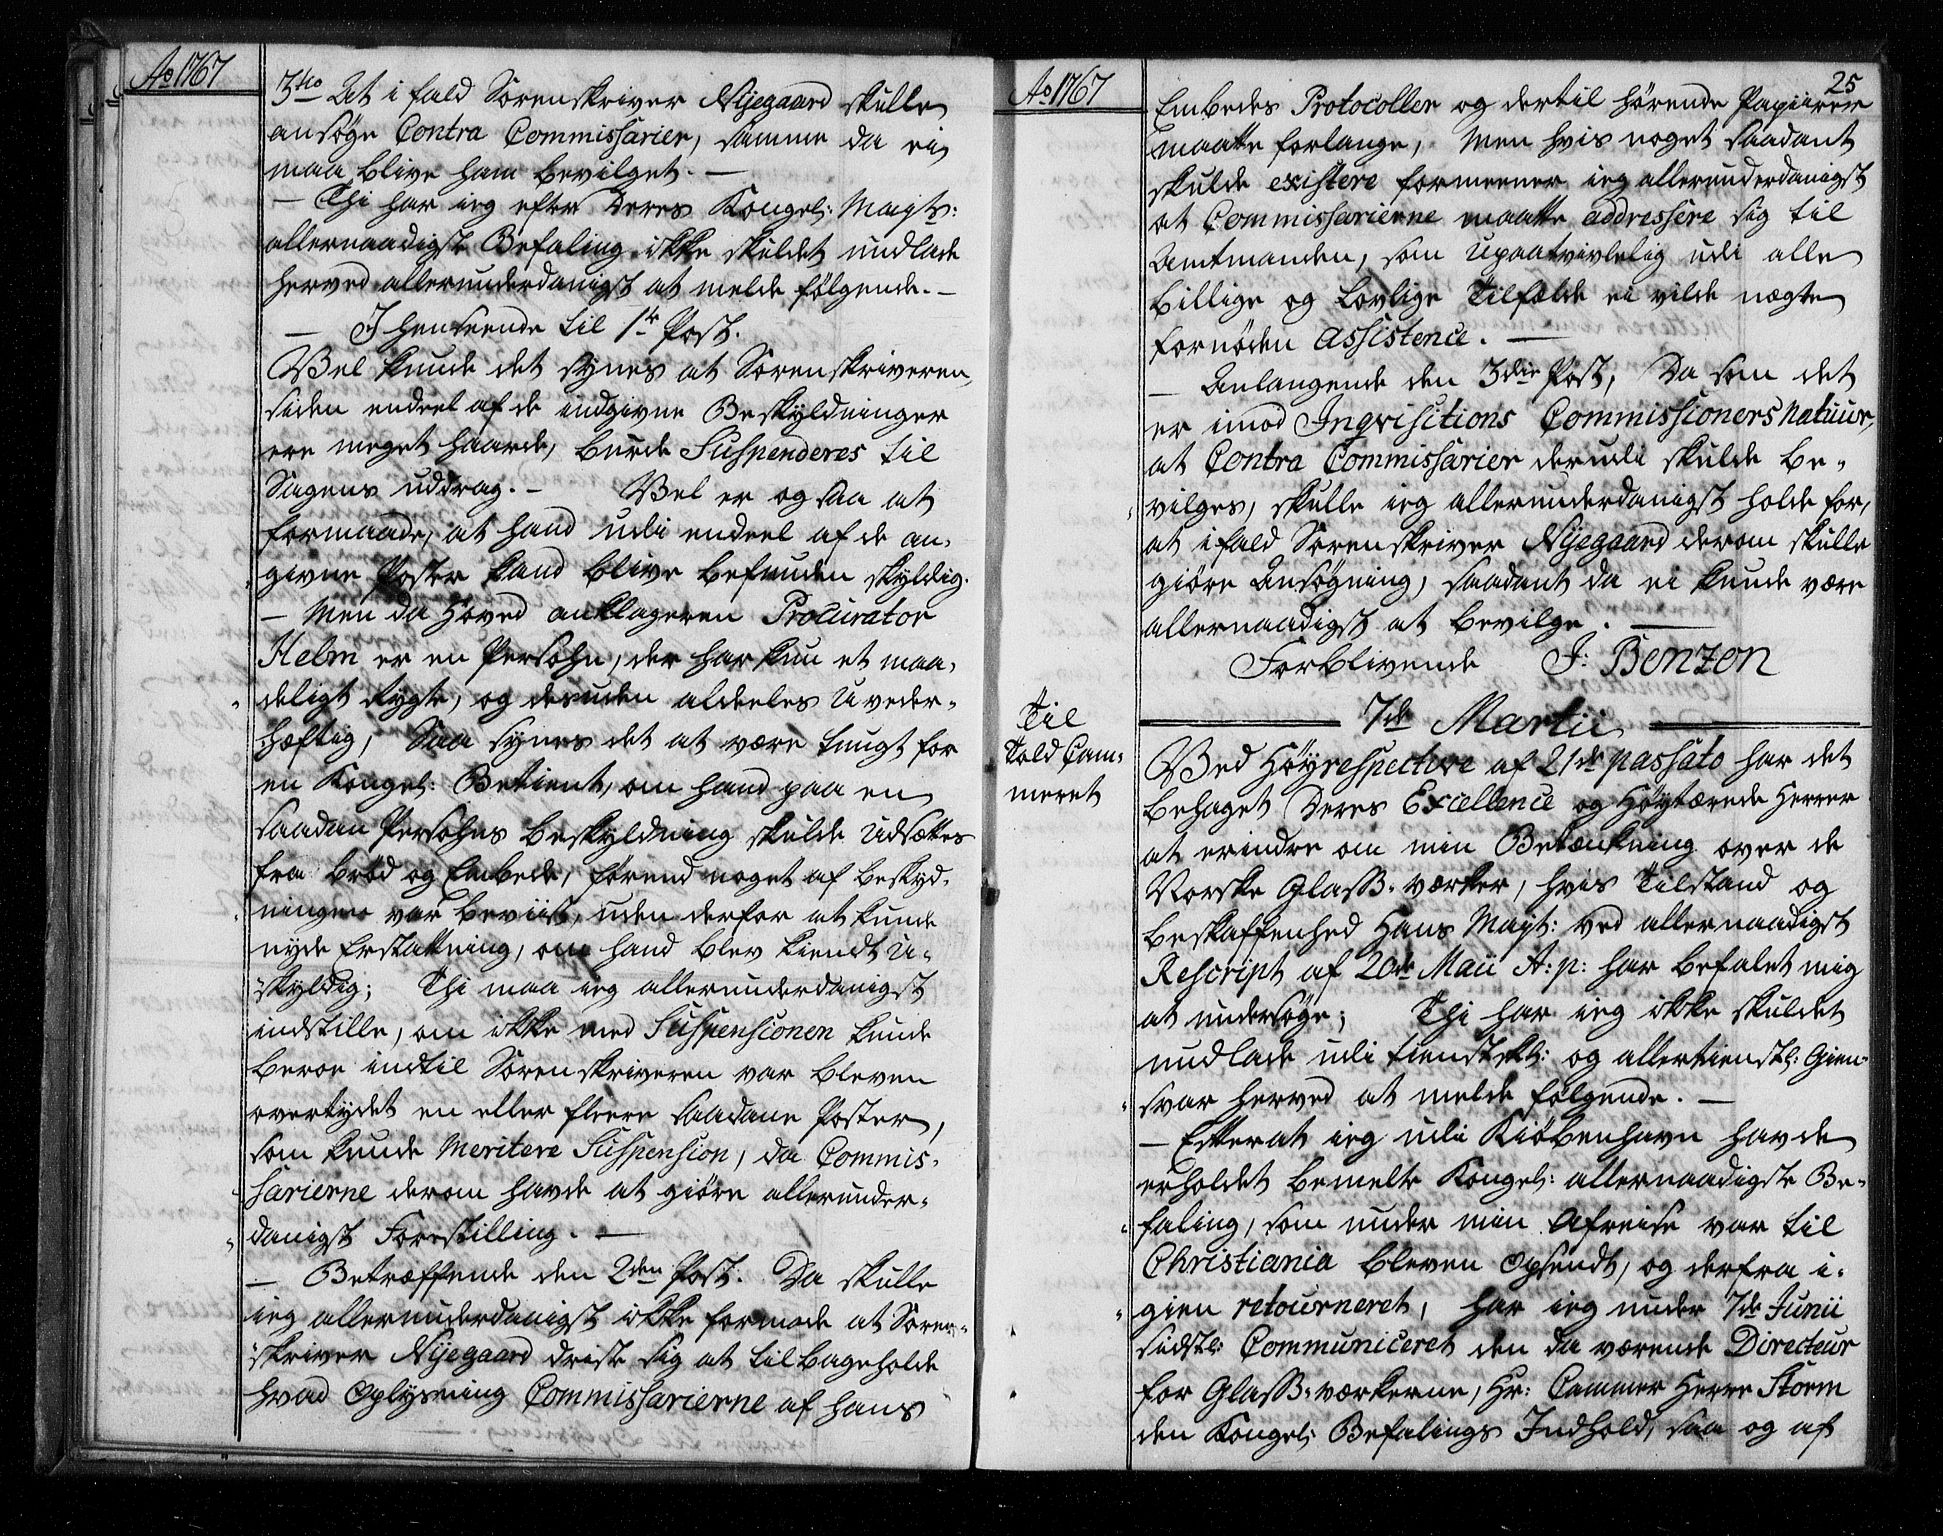 Ao 1767
3tio At i fald Sorenskriver Nÿegaard skulle
ansøge Contra Commissarier, samme da ei
maa blive ham bevilget. —
— Thi har ieg efter Deres Kongel: Mayts:
allernaadigste Befaling ikke skuldet undlade
herved allerunderdanigst at melde følgende. —
— I henseende til 1te Post.
Vel kunde det synes at Sorenskriveren,
siden endeel af de indgivne Beskyldninger
ere meget haarde, burde Suspenderes til
Sagens uddrag. — Vel er og saa at
formaade, at hand udi endeel af de an-
givne Poster kand blive befunden skyldig.
— Men da Hoved anklageren Procurator
Helm er en Persohn, der har kun et maa-
deligt Rygte, og desuden aldeeles Uveder-
hæftig, Saa synes det at være tungt for
en Kongel: Betient, om hand paa en
saadan Persohns beskyldning skulde udsættes
fra brød og Embede, førend noget af beskyd-
ningerne var beviist, uden derfor at kunde
nyde Erstatning, om hand blev kiendt u-
skyldig; Thi maa ieg allerunderdanigst
indstille, om ikke med Suspensionen kunde
beroe indtil Sorenskriveren var bleven
overtydet en eller fleere saadane Poster,
som kunde Meritere Suspension, da Commis-
sarierne derom havde at giøre allerunder-
danigst Forestilling. —
— Betræffende den 2den Post. Da skulle
ieg allerunderdanigst ikke formode at Soren-
skriver Nÿegaard driste sig at tilbageholde
hvad Oplysning Commissarierne af hans
Ao 1767
25
Embedes Protocoller og dertil hørende Papiirer
maatte forlange, Men hvis noget saadant
skulde existere formeener ieg allerunderdanigst
at Commissarierne maatte addressere sig til
Amtmanden, som upaatvivlelig udi alle
billige og lovlige Tilfælde ei vilde nægte
fornøden Assistence. —
— Anlangende den 3die Post, Da som det
er imod Inqvisitions Commissioners Natuur,
at Contra Commissarier derudi skulde be-
vilges, skulle ieg allerunderdanigst holde for,
at ifald Sorenskriver Nÿegaard derom skulle
giøre Ansøgning, saadant da ei kunde være
allernaadigst at bevilge. —
Forblivende J: Benzon
7de Martii
Til
Told Cam-
meret
Ved Høyrespective af 21de passato har det
behaget Deres Excellence og Høytærede Herrer
at erindre om min Betænkning over de
Norske Glass-værker, hvis Tilstand og
beskaffenhed Hans Mayt: ved allernaadigst
Rescript af 20de Maii A: p: har befalet mig
at undersøge; Thi har ieg ikke skuldet
undlade udi tienstskl: og allertienstl: Gien-
svar herved at melde følgende. —
— Efterat ieg udi Kiøbenhavn havde
erholdet bemelte Kongel: allernaadigste Be-
faling, som under min Afreise var til
Christiania bleven Opsendt, og derfra i-
gien retourneret, har ieg under 7de Junii
sidstl: Communiceret den da værende Directeur
for Glass-værkerne, Hr: Cammer Herre Storm
den Kongel: Befalings Indhold, saa og af